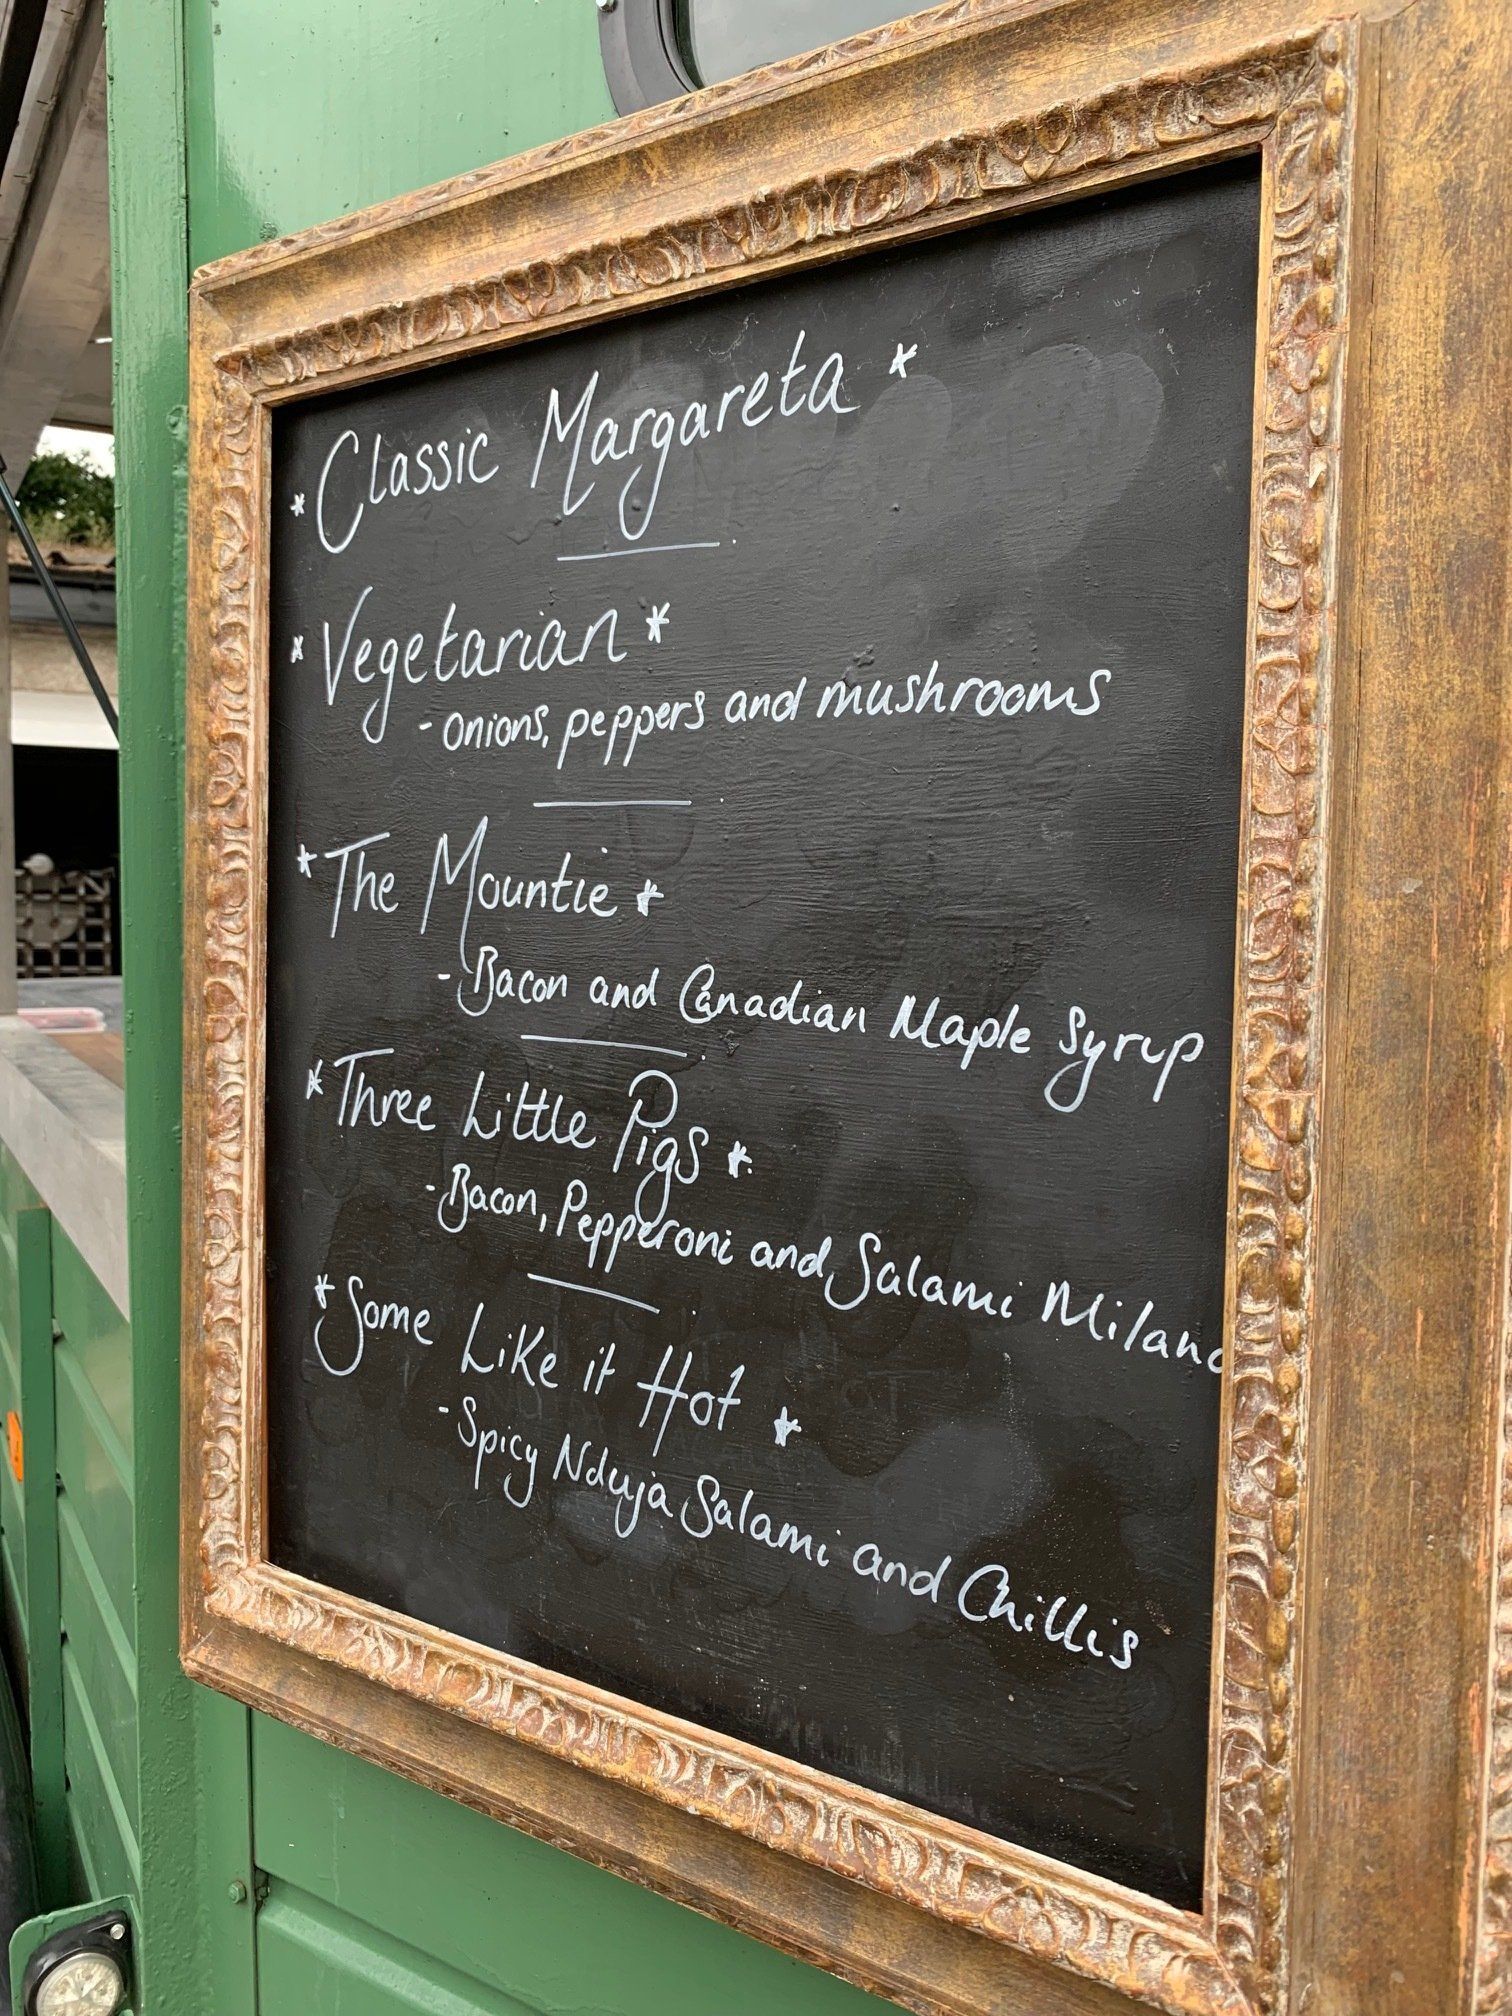 * Classic Margareta *
* Vegetarian *
- onions, peppers and mushrooms
* The Mountie *
- Bacon and Canadian Maple Syrup
* Three Little Pigs *
- Bacon, Pepperoni and Salami Milano
* Some Like it Hot *
- Spicy Nduja Salami and Chilli's